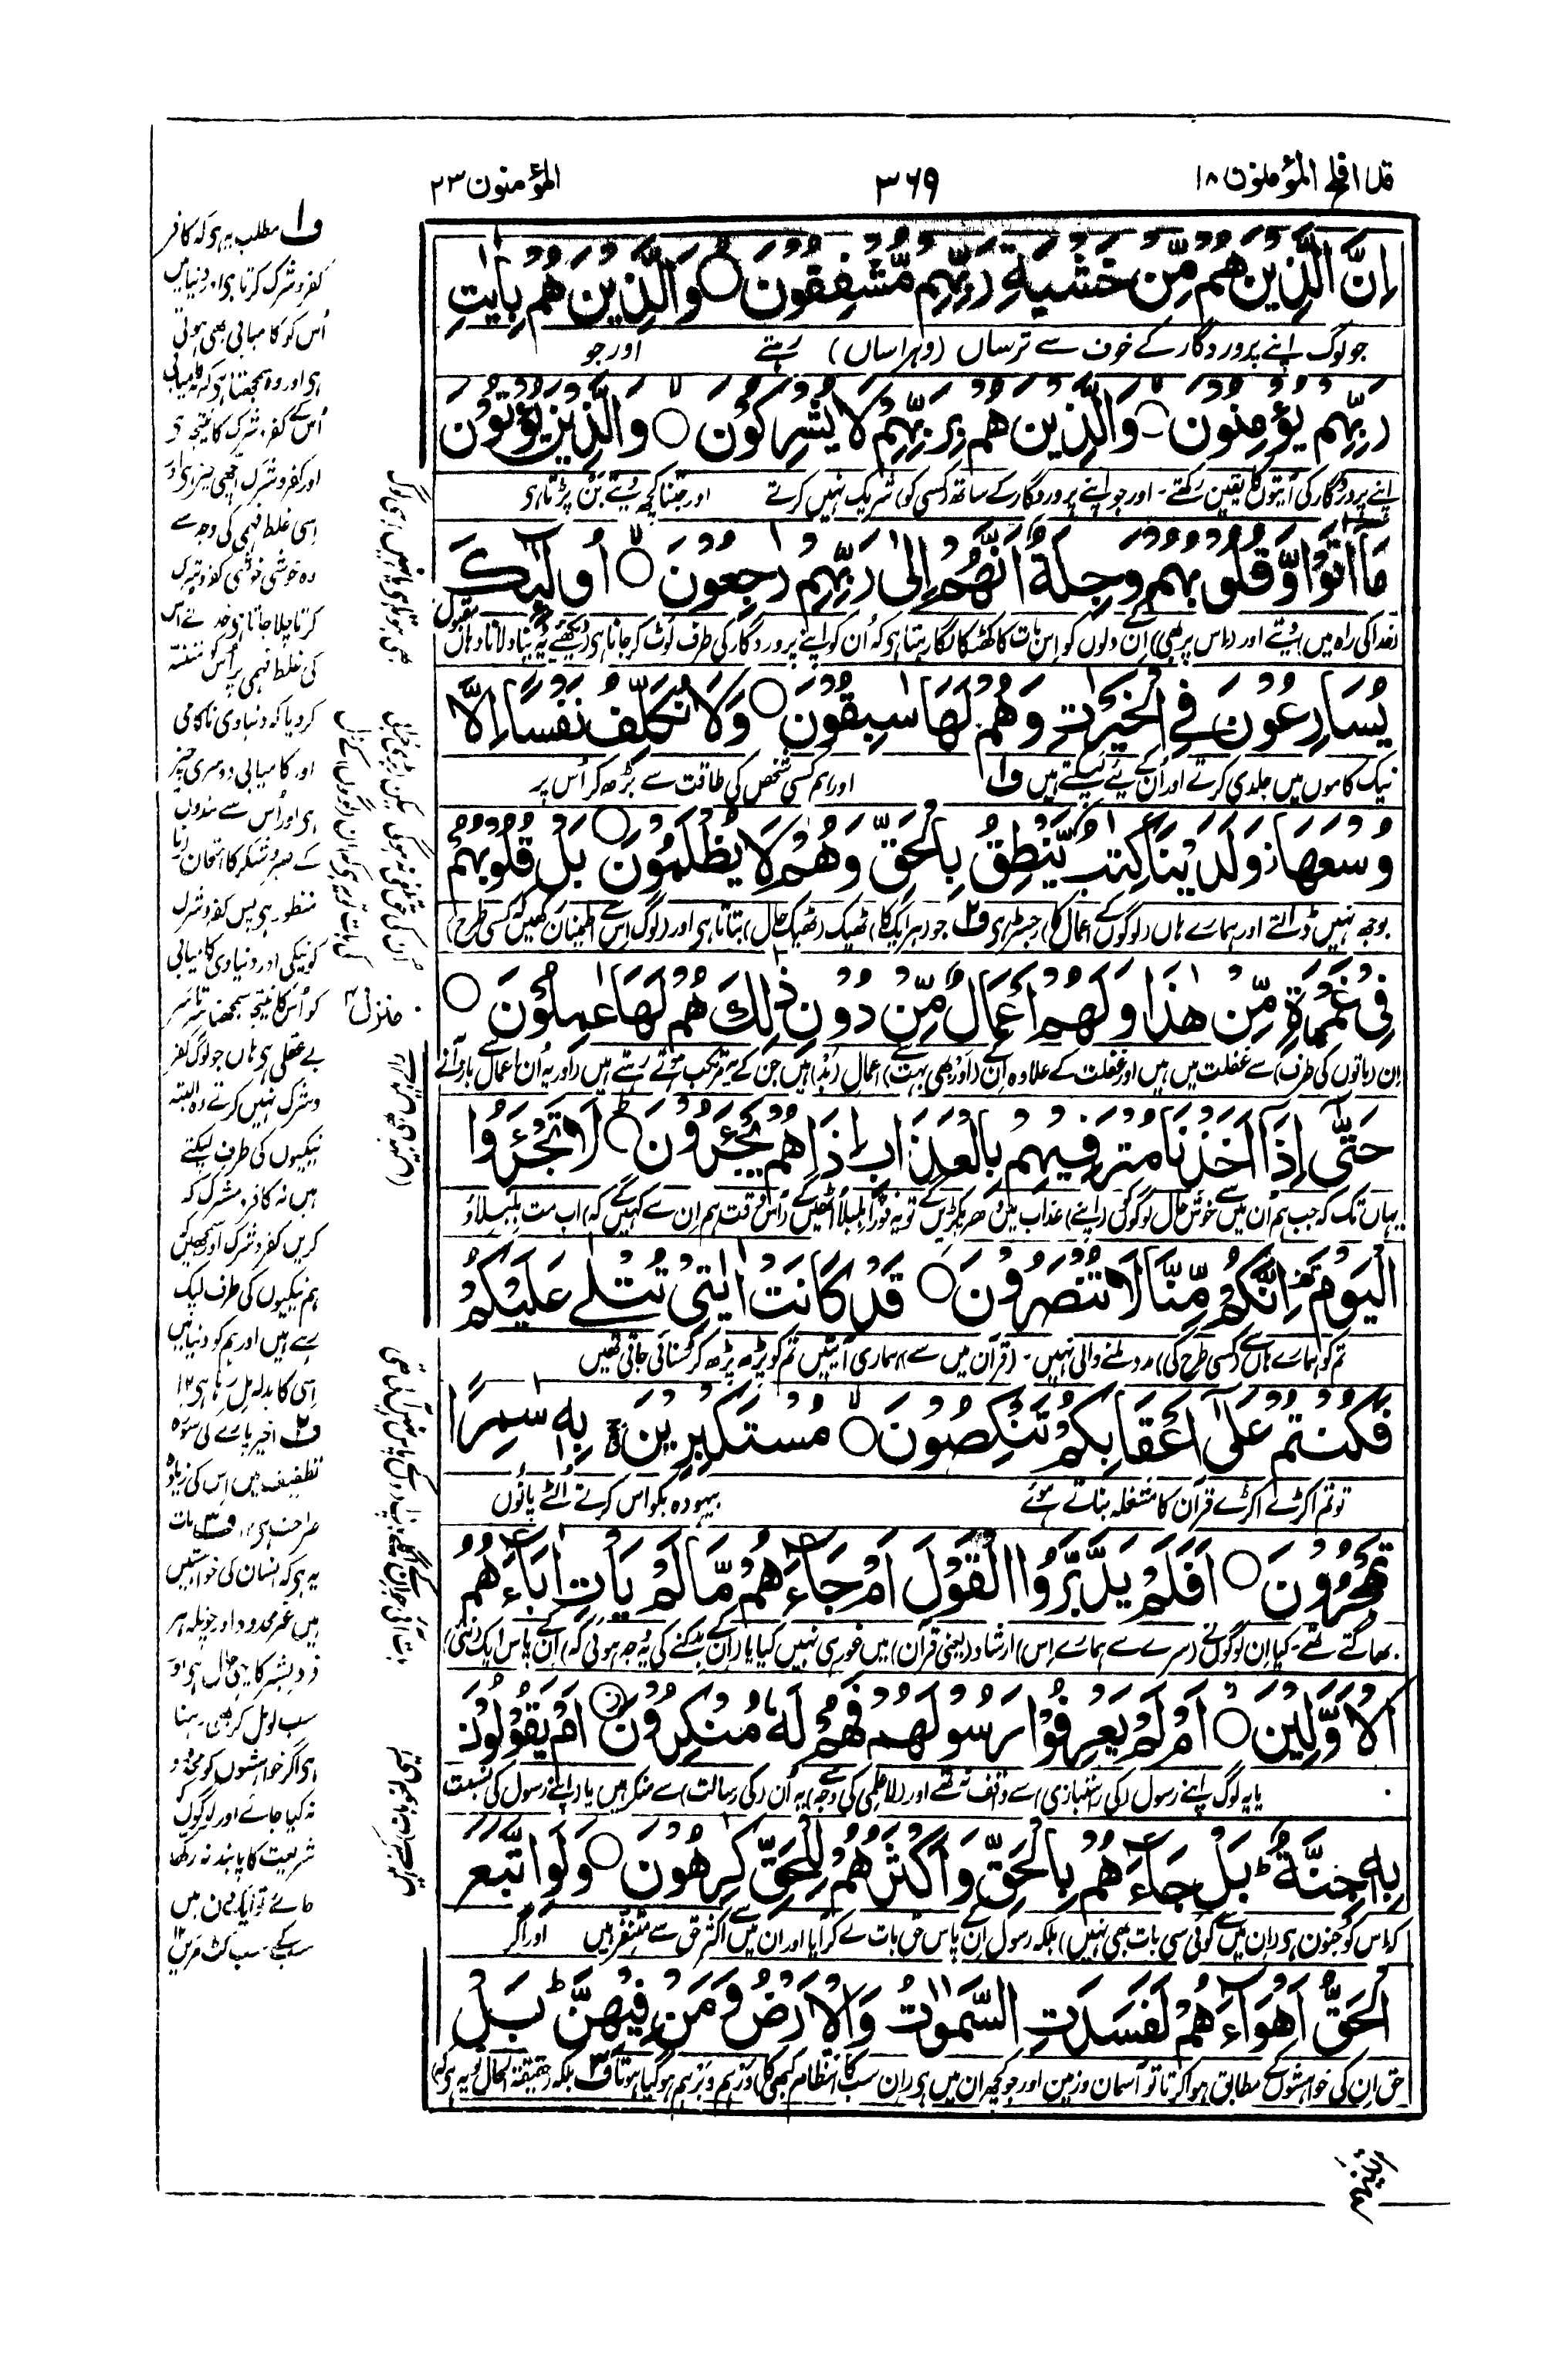 قد افلح المؤمنون ۱۸
۳۶۹
المؤمنون ۲۳
اِنَّ الَّذِیْنَ هُمْ مِّنْ خَشْیَةِ رَبِّهِمْ مُّشْفِقُوْنَ ○ وَالَّذِیْنَ هُمْ بِاٰیٰتِ
جو لوگ اپنے پروردگار کے خوف سے ترساں (وہراساں) رہتے اور جو
رَبِّهِمْ یُؤْمِنُوْنَ ○ وَالَّذِیْنَ هُمْ بِرَبِّهِمْ لَا یُشْرِكُوْنَ ○ وَالَّذِیْنَ یُؤْتُوْنَ
اپنے پروردگار کی آیتوں کا یقین رکھتے۔ اور جو اپنے پروردگار کے ساتھ (کسی کو) شریک نہیں کرتے اور جتنا کچھ دیتے بن پڑتا ہی
مَاۤ اٰتَوْا وَّقُلُوْبُهُمْ وَجِلَةٌ اَنَّهُمْ اِلٰى رَبِّهِمْ رٰجِعُوْنَ ○ اُولٰٓىِٕكَ
(خدا کی راہ میں) دیتے اور (اس پر بھی) ان کے دلوں کو اس بات کا کھٹکا لگا رہتا ہی کہ اُن کو اپنے پروردگار کی طرف لوٹ کر جانا ہی (دیکھئے یہ دینا دلانا وہاں مقبول
یُسٰرِعُوْنَ فِی الْخَیْرٰتِ وَهُمْ لَهَا سٰبِقُوْنَ ○ وَلَا نُكَلِّفُ نَفْسًا اِلَّا
نیک کاموں میں جلدی کرتے اور اُن کے لئے لپکتے ہیں ف۱ اور ہم کسی شخص کی طاقت سے بڑھ کر اُس پر
وُسْعَهَا وَلَدَیْنَا كِتٰبٌ یَّنْطِقُ بِالْحَقِّ وَهُمْ لَا یُظْلَمُوْنَ ○ بَلْ قُلُوْبُهُمْ
بوجھ نہیں ڈالتے اور ہمارے ہاں (لوگوں کے اعمال کا) رجسٹر ہی ف۲ جو (ہر ایک کا) ٹھیک (ٹھیک حال) بتاتا ہی اور (لوگ اس سے اطمینان رکھیں کہ کسی طرح)
فِیْ غَمْرَةٍ مِّنْ هٰذَا وَلَهُمْ اَعْمَالٌ مِّنْ دُوْنِ ذٰلِكَ هُمْ لَهَا عٰمِلُوْنَ ○
اِن (باتوں کی طرف) سے غفلت میں ہیں اور غفلت کے علاوہ اُن کے (اور بھی بہت سے) اعمال (بد) ہیں جن کے یہ مرتکب ہوتے رہتے ہیں (اور یہ اُن اعمال سے باز آنے
حَتّٰۤى اِذَاۤ اَخَذْنَا مُتْرَفِیْهِمْ بِالْعَذَابِ اِذَا هُمْ یَجْـَٔرُوْنَ ○ لَا تَجْـَٔرُوا
یہاں تک کہ جب ہم اُن میں سے خوش حال لوگوں کو (اپنے) عذاب میں دھر پکڑیں گے تو یہ فوراً بلبلا اُٹھیں گے (اُس وقت ہم اِن سے کہیں گے کہ) اب مت بلبلاؤ
الْیَوْمَ اِنَّكُمْ مِّنَّا لَا تُنْصَرُوْنَ ○ قَدْ كَانَتْ اٰیٰتِیْ تُتْلٰى عَلَیْكُمْ
تم کو ہمارے ہاں سے (کسی طرح کی) مدد ملنے والی نہیں۔ (قرآن میں سے) ہماری آیتیں تم کو پڑھ پڑھ کر سُنائی جاتی تھیں
فَكُنْتُمْ عَلٰۤى اَعْقَابِكُمْ تَنْكِصُوْنَ ○ مُسْتَكْبِرِیْنَ بِهٖ سٰمِرًا
تو تم اکڑتے اکڑے قرآن کا مشغلہ بناتے ہوئے بیہودہ بکواس کرتے اُلٹے پاؤں
تَهْجُرُوْنَ ○ اَفَلَمْ یَدَّبَّرُوا الْقَوْلَ اَمْ جَآءَهُمْ مَّا لَمْ یَاْتِ اٰبَآءَهُمُ
بھاگتے تھے۔ کیا اِن لوگوں نے (سرے سے ہمارے اِس) ارشاد (یعنی قرآن) میں غور ہی نہیں کیا یا (اِن کے بدکنے کی یہ وجہ ہوئی کہ) اُن کے پاس ایک (نئی)
الْاَوَّلِیْنَ ○ اَمْ لَمْ یَعْرِفُوْا رَسُوْلَهُمْ فَهُمْ لَهٗ مُنْكِرُوْنَ ○ اَمْ یَقُوْلُوْنَ
یا یہ لوگ اپنے رسول (کی راستبازی) سے واقف نہ تھے اور (لاعلمی کی وجہ سے) یہ اُن (کی رسالت) سے منکر ہیں یا (اپنے رسول کی نسبت
بِهٖ جِنَّةٌ بَلْ جَآءَهُمْ بِالْحَقِّ وَاَكْثَرُهُمْ لِلْحَقِّ كٰرِهُوْنَ ○ وَلَوِ اتَّبَعَ
کہ اس کو جنون ہی (ان میں سے کوئی سی بات بھی نہیں) بلکہ رسول اِن کے پاس حق بات لے کر آیا اور اِن میں سے اکثر حق سے متنفر ہیں اور اگر
الْحَقُّ اَهْوَآءَهُمْ لَفَسَدَتِ السَّمٰوٰتُ وَالْاَرْضُ وَمَنْ فِیْهِنَّ بَلْ
حق اِن کی خواہشوں کے مطابق ہوا کرتا تو آسمان و زمین اور جو کچھ اِن میں ہی (اِن سب کا انتظام کبھی کا) درہم و برہم ہو گیا ہوتا ف۳ بلکہ (حقیقۃ الحال تو یہ ہی کہ)
منزل۴
ف۱ مطلب یہ ہی کہ کافر
کفر و شرک کرتا ہی اور دنیا میں
اُس کو کامیابی بھی ہوتی
ہی اور وہ سمجھتا ہی کہ یہ کامیابی
اُس کے کفر و شرک کا نتیجہ ہی
اور کفر و شرک اچھی چیز ہی اور
اِسی غلط فہمی کی وجہ سے
وہ خوشی خوشی کفر و شرک
کرتا چلا جاتا ہی خدا نے اس
کی غلط فہمی پر اُس کو متنبہ
کر دیا کہ دنیاوی ناکامی
اور کامیابی دوسری چیز
ہی اور اُس سے بندوں
کے صبر و شکر کا امتحان لینا
منظور ہی پس کفر و شرک
کو نیکی اور دنیاوی کامیابی
کو اُس کا نتیجہ سمجھنا سراسر
بے عقلی ہی ہاں جو لوگ کفر
و شرک نہیں کرتے وہ البتہ
نیکیوں کی طرف لپکتے
ہیں نہ کافر و مشرک کہ
کریں کفر و شرک اور سمجھیں
ہم نیکیوں کی طرف لپک
رہے ہیں اور ہم کو دنیا میں
اِسی کا بدلہ مل رہا ہی ۱۲
ف۲ اخیر پارے کی سورۂ
تطفیف میں اِس کی زیادہ
صراحت ہی ۱۲ ف۳ بات
یہ ہی کہ انسان کی خواہشیں
ہیں غیر محدود اور
فرد بشر کا یہی حال ہی اور
سب کو مل کر بھی رہنا
ہی اگر خواہشوں کو محدود
نہ کیا جائے اور لوگوں کو
شریعت کا پابند نہ رکھا
جائے تو ایک دن میں
سب کٹ مریں ۱۲